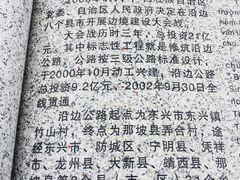 党委、自治区人民政府决定在沿边
八个县市开展边境建设大会战。
大会战历时三年，总投资21亿
元。其中标志性工程就是修筑沿边
公路。公路按三级公路标准设计，
于2000年10月动工兴建，沿边公路
总投资9.2亿元，2002年9月30日全
线贯通。
沿边公路起点为东兴市东兴镇
竹山村，终点为那坡县弄合村，途
经东兴市、防城区、宁明县、凭祥
市、龙州县、大新县、靖西县、那